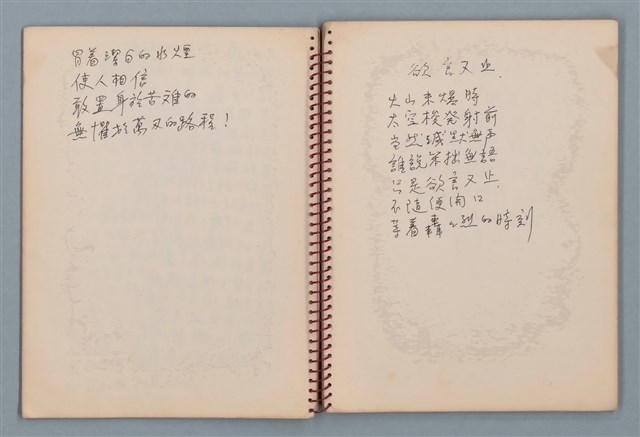 冒着潔白的水煙
使人相信
敢置身於苦难的
無懼於萬叉的路程！
欲言又止．
火山未爆時
太空梭発射前
当然缄默無声
誰說笨拙無語
只是欲言又止．
不隨便開口
等着轟々烈的時刻